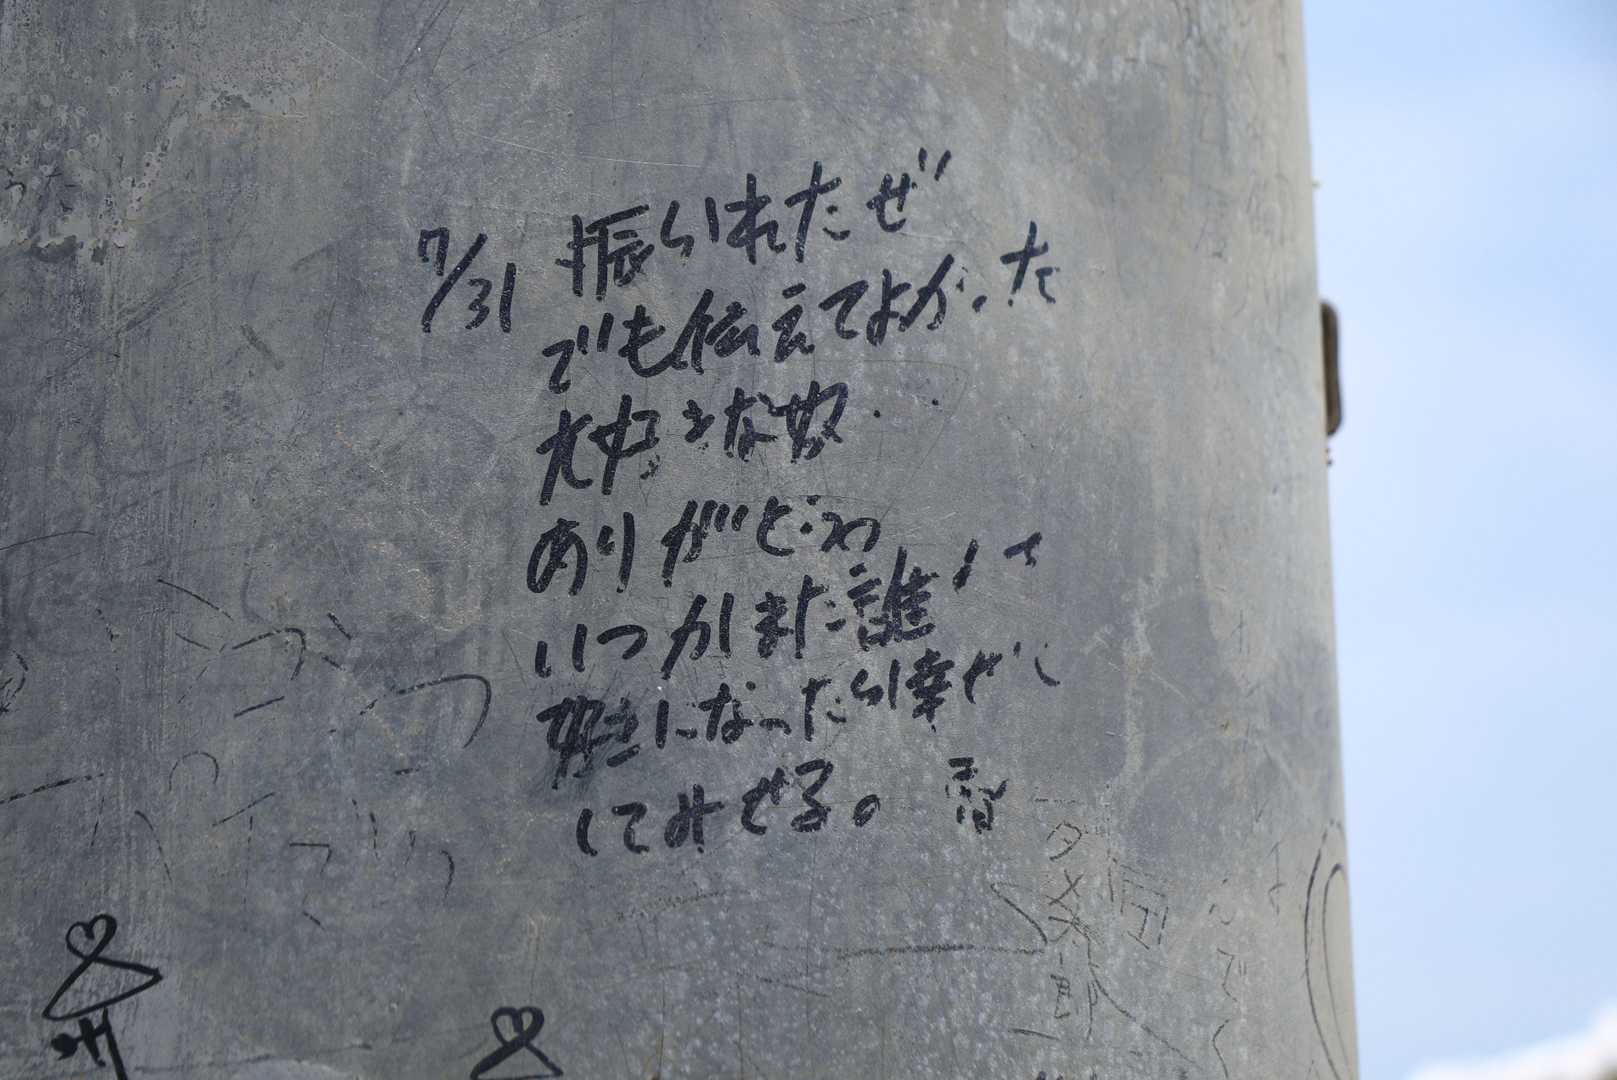 7/31 振られたぜ
でも伝えてよかった
大好きな奴..
ありがとね
いつかまた誰かを
好きになったら幸せに
してみせる。